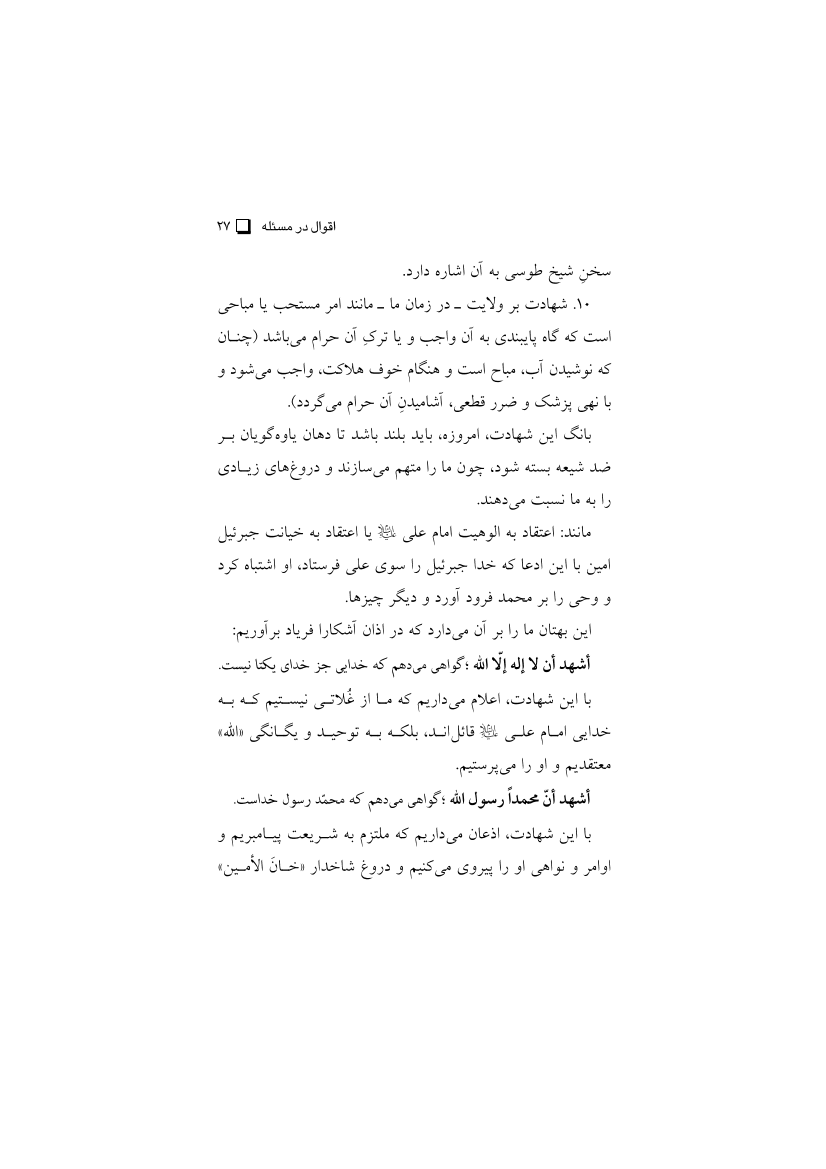 اقوال در مسئله ❑ ۲۷
سخنِ شیخ طوسی به آن اشاره دارد.
۱۰. شهادت بر ولایت ـ در زمان ما ـ مانند امر مستحب یا مباحی
است که گاه پایبندی به آن واجب و یا ترکِ آن حرام می‌باشد (چنان
که نوشیدن آب، مباح است و هنگام خوف هلاکت، واجب می‌شود و
با نهی پزشک و ضرر قطعی، آشامیدنِ آن حرام می‌گردد).
بانگ این شهادت، امروزه، باید بلند باشد تا دهان یاوه‌گویان بر
ضد شیعه بسته شود، چون ما را متهم می‌سازند و دروغ‌های زیادی
را به ما نسبت می‌دهند.
مانند: اعتقاد به الوهیت امام علی علیه السلام یا اعتقاد به خیانت جبرئیل
امین با این ادعا که خدا جبرئیل را سوی علی فرستاد، او اشتباه کرد
و وحی را بر محمد فرود آورد و دیگر چیزها.
این بهتان ما را بر آن می‌دارد که در اذان آشکارا فریاد برآوریم:
أشهد أن لا إله إلّا الله ؛گواهی می‌دهم که خدایی جز خدای یکتا نیست.
با این شهادت، اعلام می‌داریم که ما از غُلاتی نیستیم که به
خدایی امام علی علیه السلام قائل‌اند، بلکه به توحید و یگانگی «الله»
معتقدیم و او را می‌پرستیم.
أشهد أنّ محمداً رسول الله ؛گواهی می‌دهم که محمّد رسول خداست.
با این شهادت، اذعان می‌داریم که ملتزم به شریعت پیامبریم و
اوامر و نواهی او را پیروی می‌کنیم و دروغ شاخدار «خانَ الأمین»